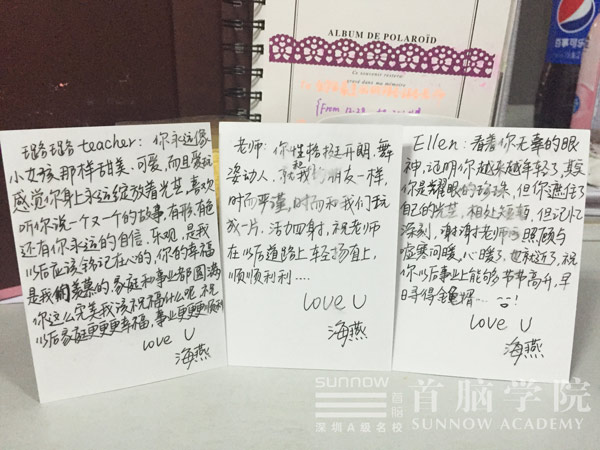 ALBUM DE POLAROÏD
Ce souvenir restera
gravé dans ma mémoire
百事可乐
璐璐 teacher: 你永远像
小女孩那样甜美、可爱,而且爱玩
感觉你身上永远绽放着光芒,喜欢
听你说一个又一个的故事,有形有色
还有你永远的自信、乐观,是我
以后应该铭记在心的,你的幸福
是我们羡慕的家庭和事业都圆满
你这么完美我该祝福什么呢,祝
以后家庭更更更幸福,事业更更更顺利
love U
海燕
老师: 你性格挺开朗,舞
姿动人,就和朋友一样,
时而严谨,时而和我们玩
成一片,活力四射,祝老师
在以后道路上轻场直上,
顺顺利利....
love U
海燕
Ellen: 看着你无辜的眼
神,证明你越来越年轻了,其实
你是耀眼的珍珠,但你遮住了
自己的光芒,相处短暂,但记忆
深刻,谢谢老师的照顾与
嘘寒问暖,心暖了,也就近了,祝
你以后事业上能够节节高升,早
日寻得金龟婿...
love U
海燕
SUNNOW
首脑
深圳A级名校
首脑学院
SUNNOW ACADEMY